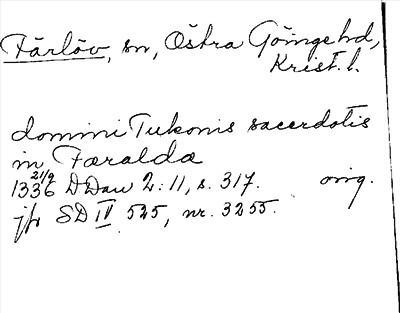 Färlöv, sn, Östra Göinge hd,
Krist. l.
domini Tukonis sacerdotis
in Færaldæ
1336 21/9 DDan 2:11, s. 317. orig.
jfr SD IV 525, nr. 3255.